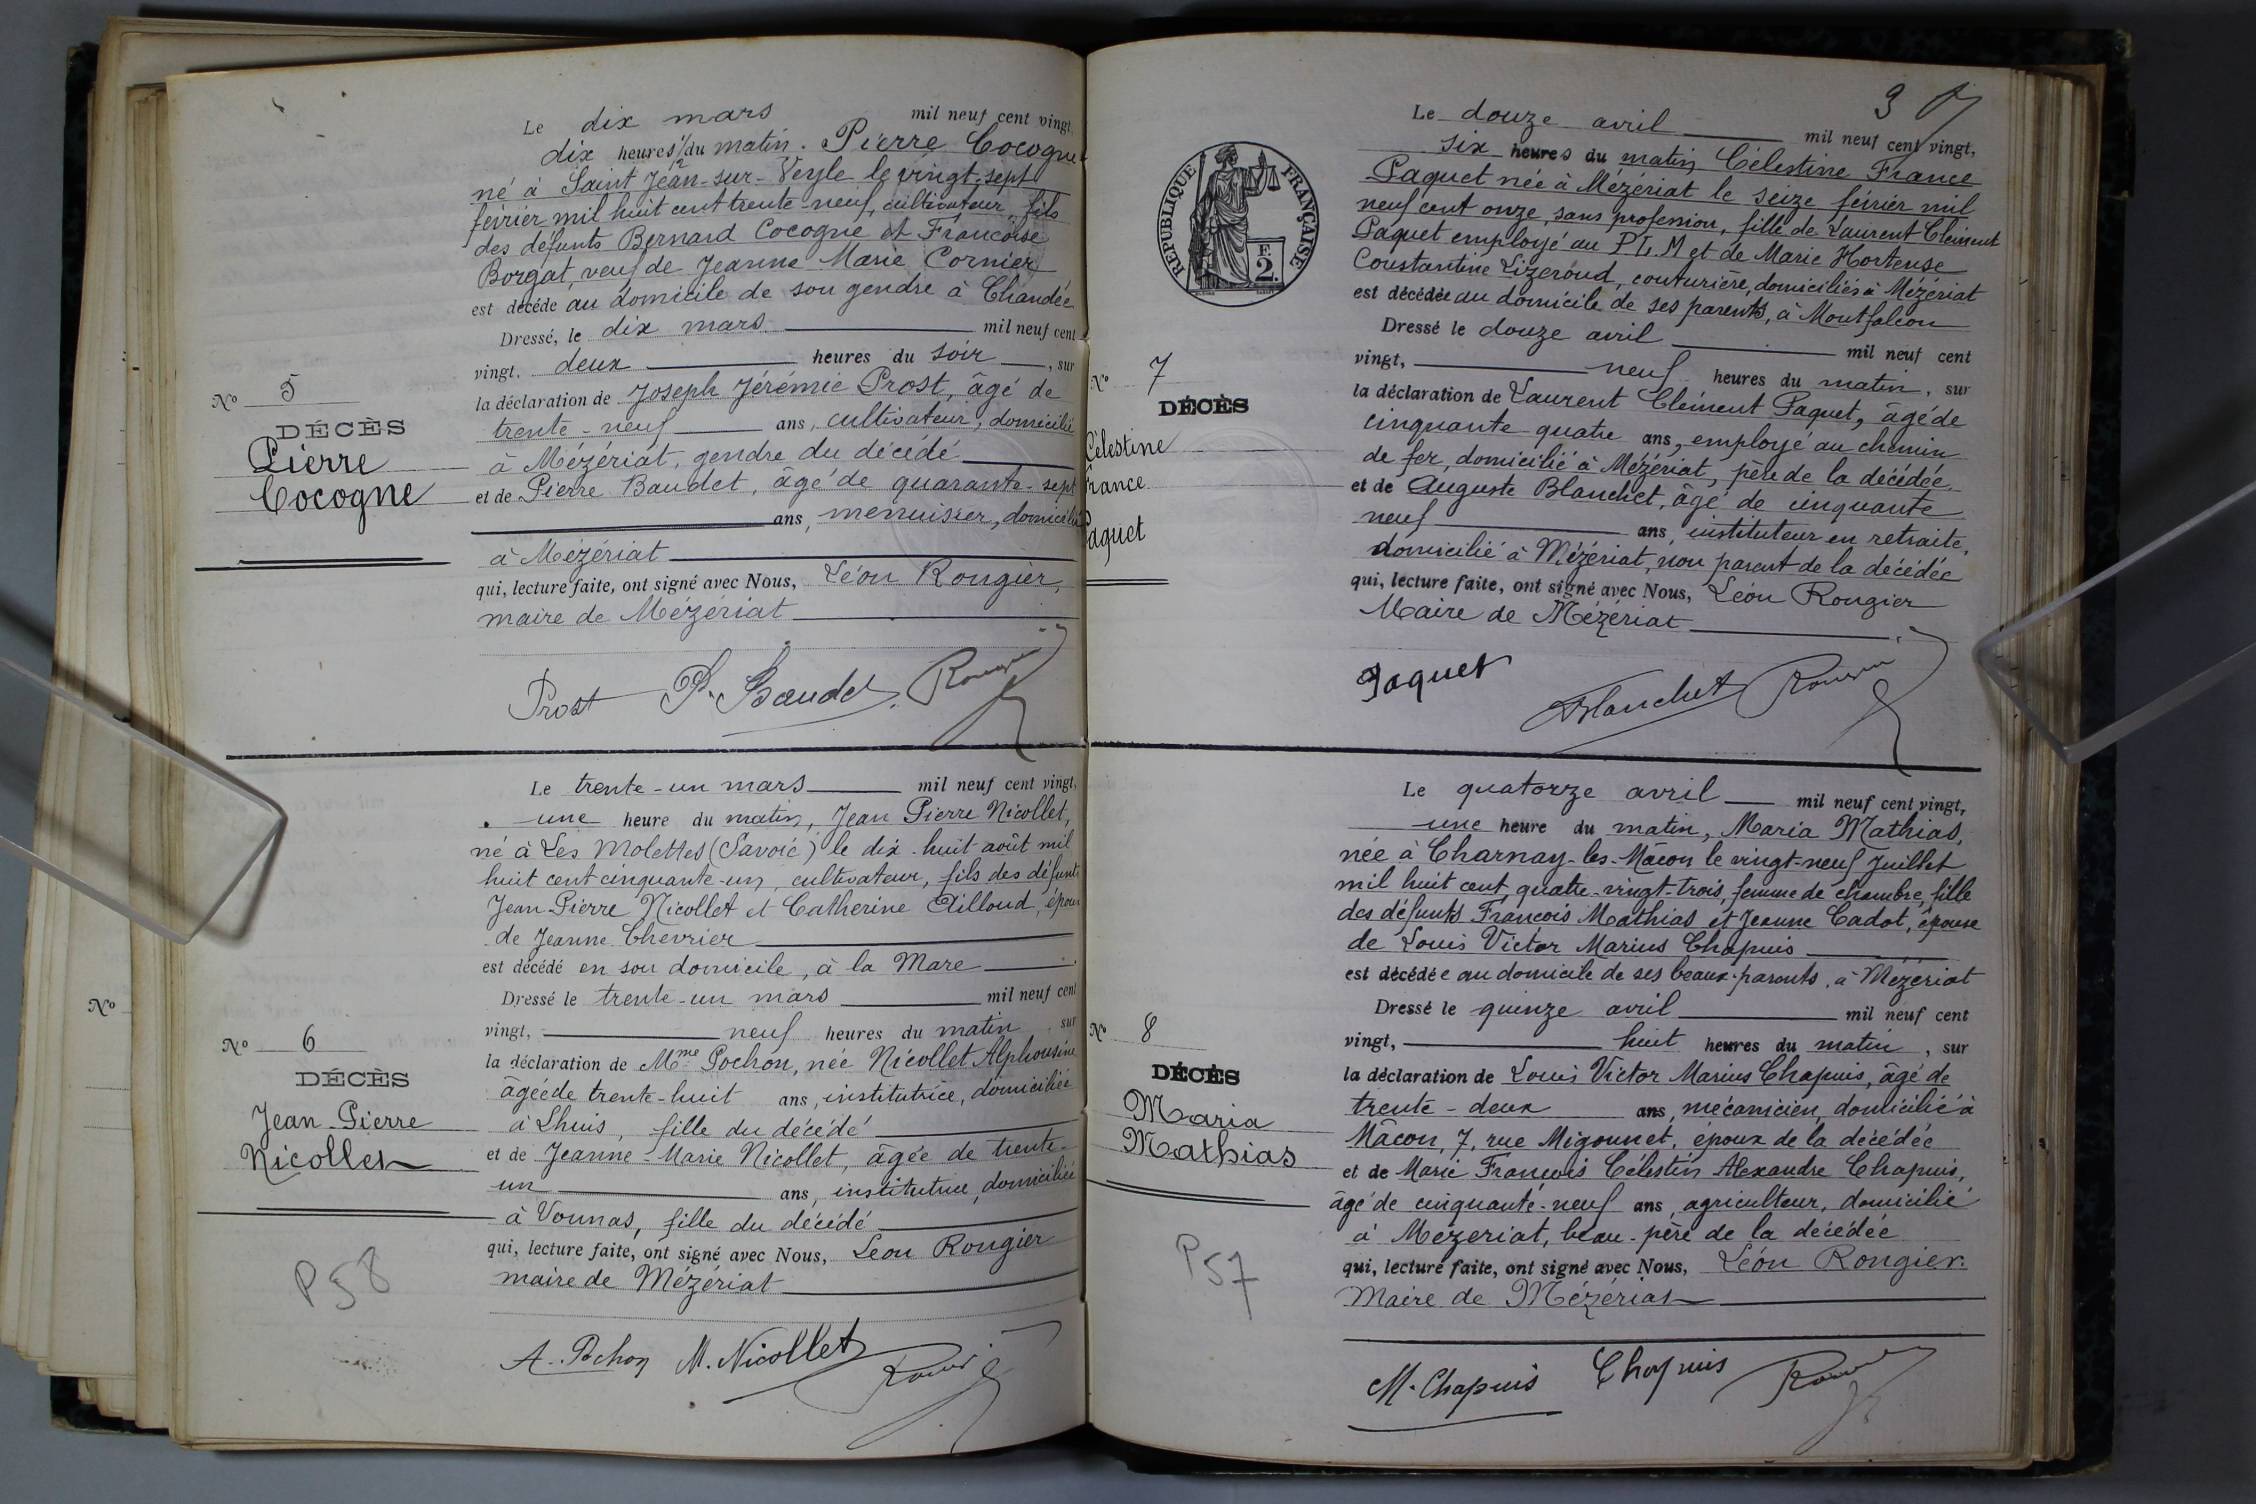 Le dix mars mil neuf cent vingt,
dix heures 1/2 du matin. Pierre Cocogne
né à Saint Jean-sur-Veyle le vingt-sept
février mil huit cent trente-neuf, cultivateur, fils
des défunts Bernard Cocogne et Françoise
Borgat, veuf de Jeanne Marie Cornier
est décédé au domicile de son gendre à Chandée
Dressé, le dix mars mil neuf cent
vingt, deux heures du soir, sur
la déclaration de Joseph Jérémie Prost, âgé de
trente-neuf ans, cultivateur, domicilié
à Mézériat, gendre du décédé
et de Pierre Baudet, âgé de quarante-sept
ans, menuisier, domicilié
à Mézériat
qui, lecture faite, ont signé avec Nous, Léon Rougier,
maire de Mézériat
Prost P. Baudet Rougier
No 5
DÉCÈS
Pierre
Cocogne
Le trente-un mars mil neuf cent vingt,
une heure du matin, Jean Pierre Nicollet,
né à Les Molettes (Savoie) le dix-huit août mil
huit cent cinquante-un, cultivateur, fils des défunts
Jean-Pierre Nicollet et Catherine Ailloud, époux
de Jeanne Chevrier
est décédé en son domicile, à la Mare
Dressé le trente-un mars mil neuf cent
vingt, neuf heures du matin, sur
la déclaration de Mme Pochon, née Nicollet Alphonsine
âgée de trente-huit ans, institutrice, domiciliée
à Lhuis, fille du décédé
et de Jeanne-Marie Nicollet, âgée de trente-
un ans, institutrice, domiciliée
à Vonnas, fille du décédé
qui, lecture faite, ont signé avec Nous, Léon Rougier
maire de Mézériat
A. Pochon M. Nicollet Rougier
No 6
DÉCÈS
Jean-Pierre
Nicollet
P 58
No
9
RÉPUBLIQUE FRANÇAISE
F.
2.
Le douze avril mil neuf cent vingt,
six heures du matin Célestine France
Paquet née à Mézériat le seize février mil
neuf cent onze, sans profession, fille de Laurent Clément
Paquet employé au P.L.M et de Marie Hortense
Constantine Lizeroud, couturière, domiciliés à Mézériat
est décédée au domicile de ses parents, à Montfalcon
Dressé le douze avril mil neuf cent
vingt, neuf heures du matin, sur
la déclaration de Laurent Clément Paquet, âgé de
cinquante quatre ans, employé au chemin
de fer, domicilié à Mézériat, père de la décédée
et de Auguste Blanchet, âgé de cinquante
neuf ans, instituteur en retraite,
domicilié à Mézériat, non parent de la décédée
qui, lecture faite, ont signé avec Nous, Léon Rougier
Maire de Mézériat
Paquet Blanchet Rougier
No 7
DÉCÈS
Célestine
France
Paquet
Le quatorze avril mil neuf cent vingt,
une heure du matin, Maria Mathias,
née à Charnay-les-Mâcon le vingt-neuf Juillet
mil huit cent quatre-vingt-trois, femme de chambre, fille
des défunts François Mathias et Jeanne Cadot, épouse
de Louis Victor Marius Chapuis
est décédée au domicile de ses beaux-parents, à Mézériat
Dressé le quinze avril mil neuf cent
vingt, huit heures du matin, sur
la déclaration de Louis Victor Marius Chapuis, âgé de
trente-deux ans, mécanicien, domicilié à
Mâcon, 7, rue Migonnet, époux de la décédée
et de Marie François Célestin Alexandre Chapuis,
âgé de cinquante-neuf ans, agriculteur, domicilié
à Mézériat, beau-père de la décédée
qui, lecture faite, ont signé avec Nous, Léon Rougier.
Maire de Mézériat
M. Chapuis Chapuis Rougier
No 8
DÉCÈS
Maria
Mathias
P 57